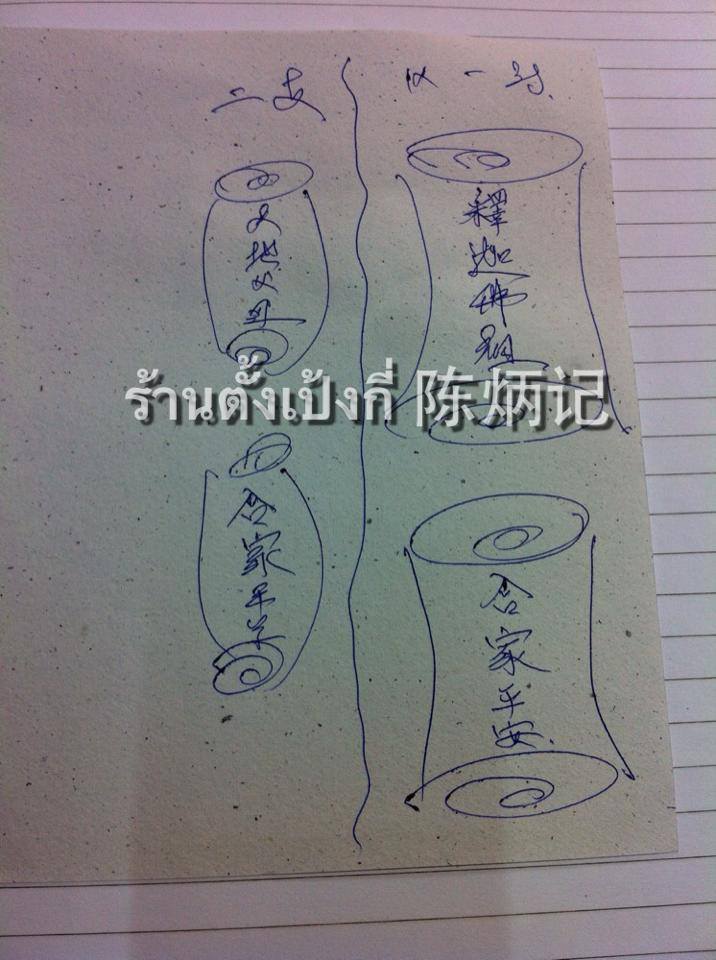 一对
釋迦佛祖
合家平安
二支
天地父母
合家平安
ร้านตั้งเป้งกี่ 陈炳记